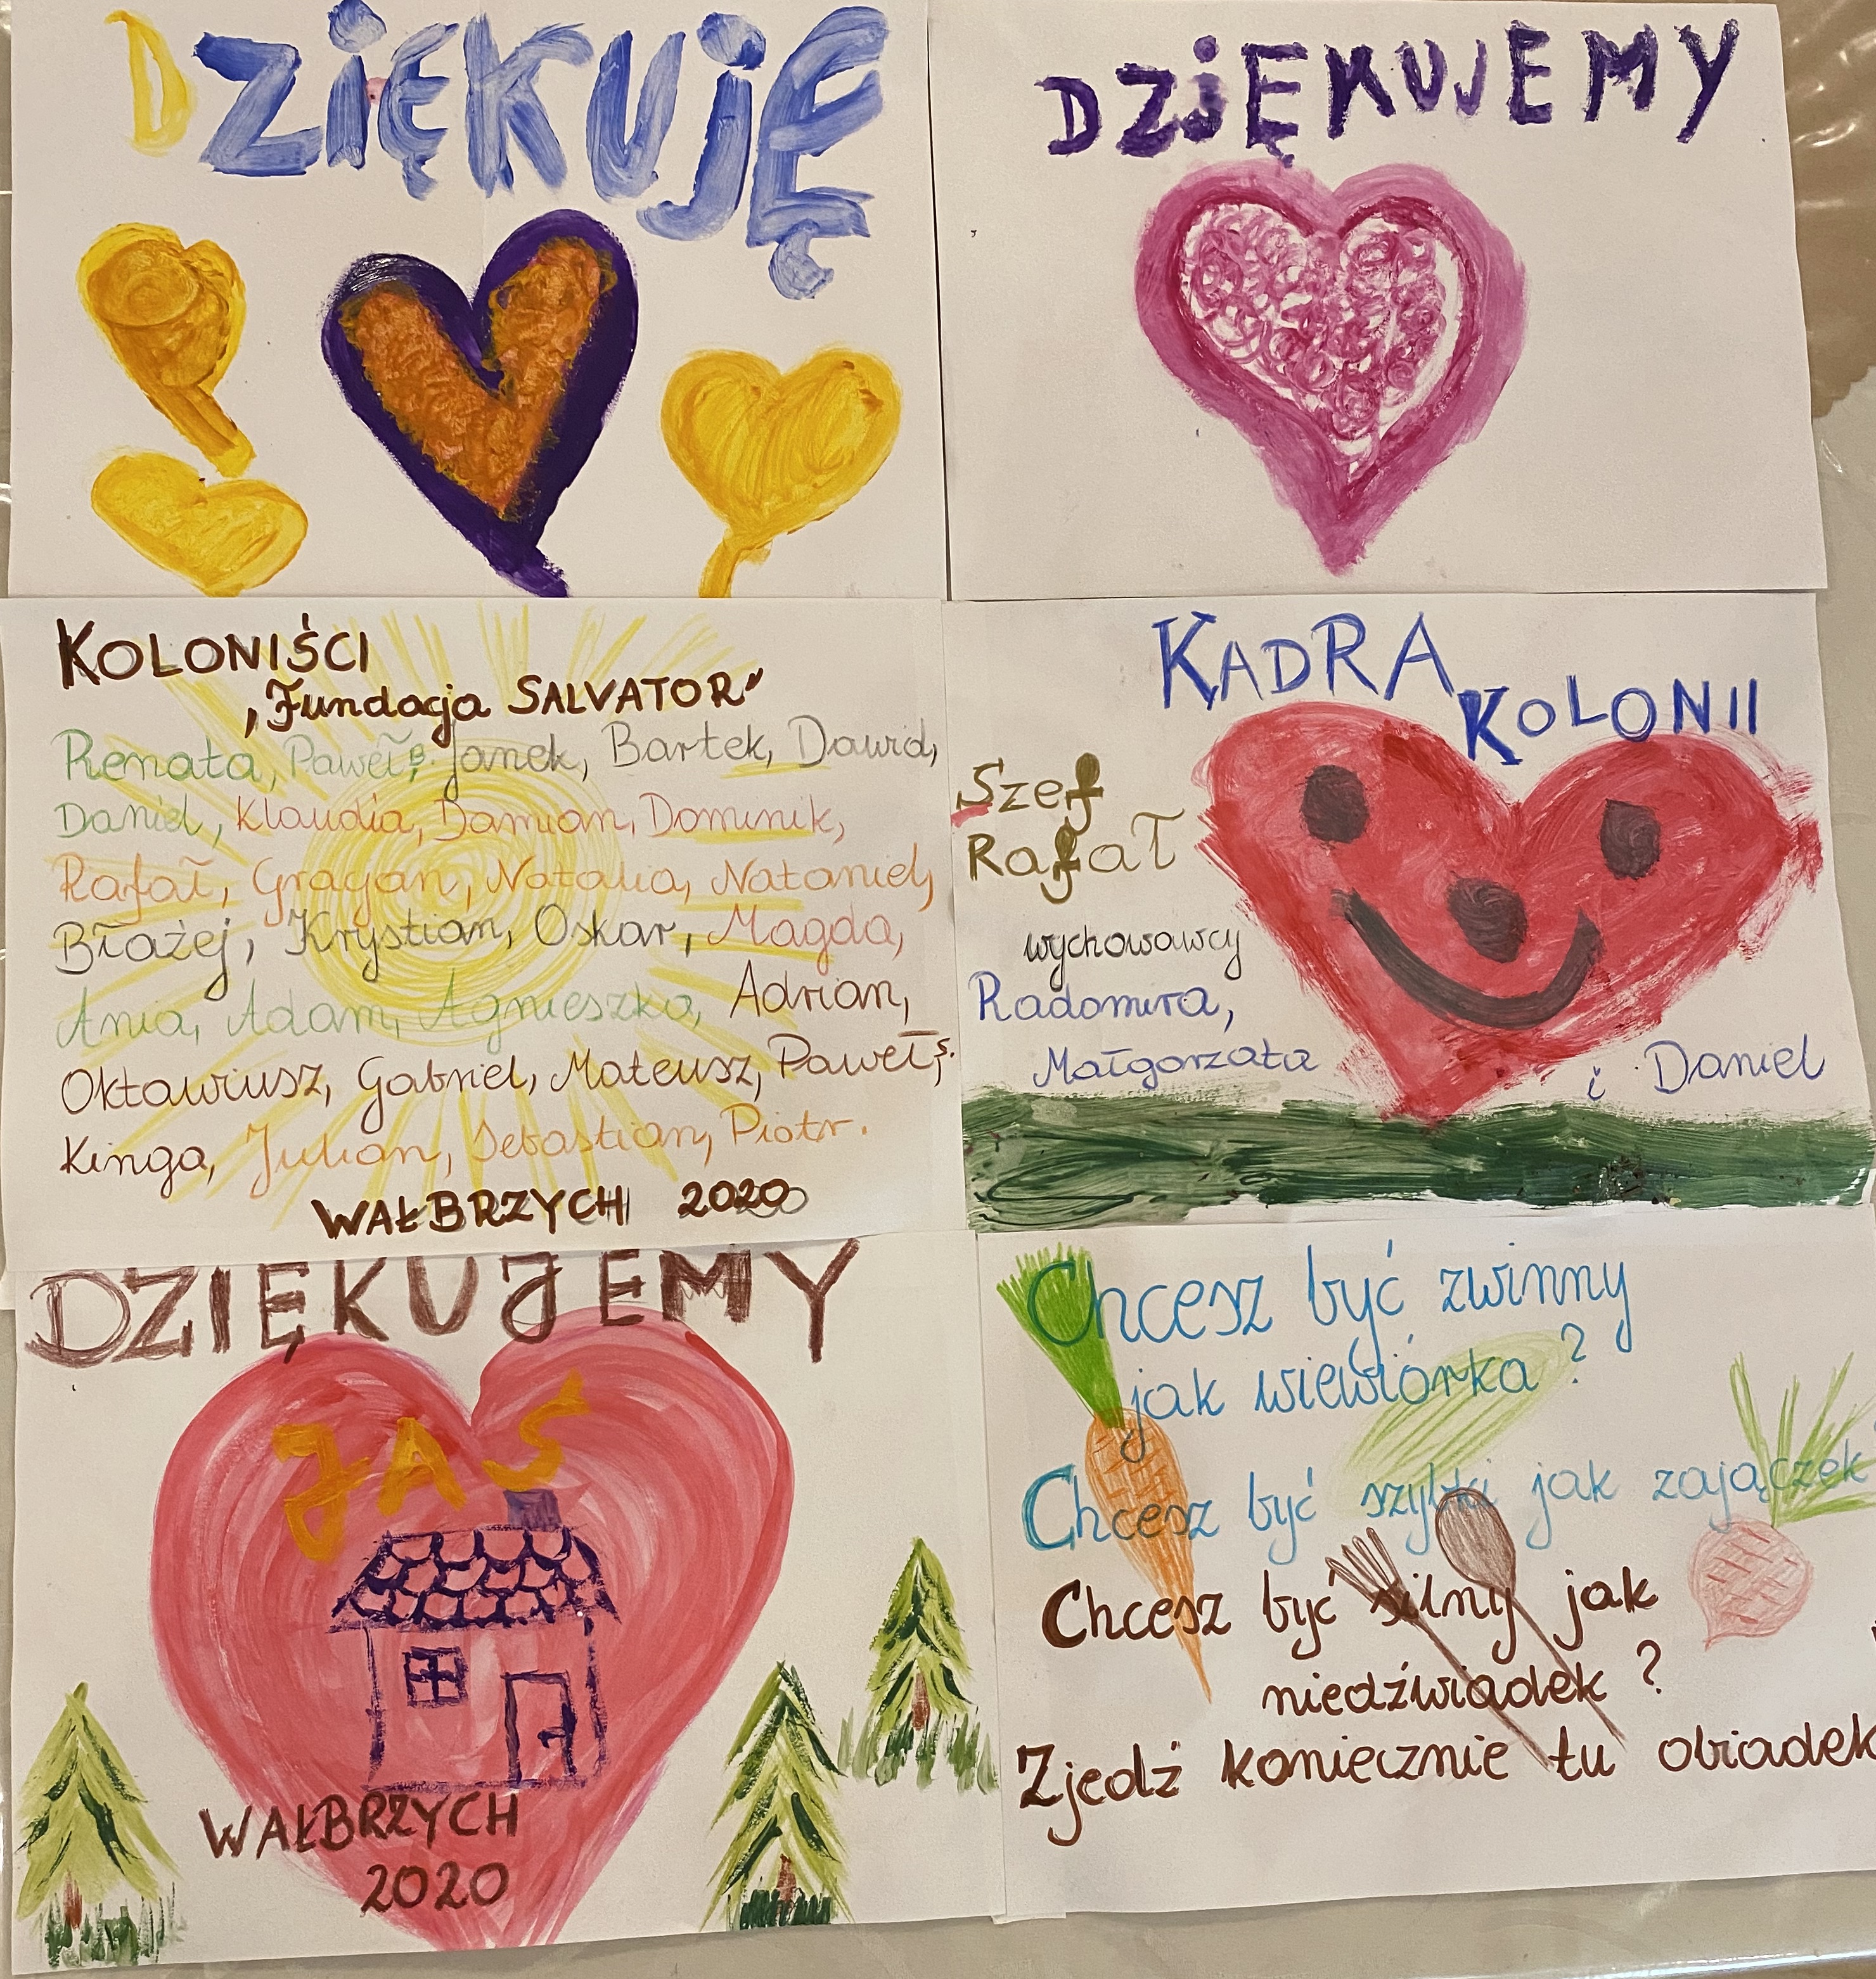 DZIĘKUJĘ
DZIĘKUJEMY
KOLONIŚCI
„Fundacja SALVATOR”
Renata, Paweł B. Janek, Bartek, Dawid,
Daniel, Klaudia, Damian, Dominik,
Rafał, Gragan, Natalia, Nataniel,
Błażej, Krystian, Oskar, Magda,
Ania, Adam, Agnieszka, Adrian,
Oktawiusz, Gabriel, Mateusz, Paweł S.
Kinga, Julian, Sebastian, Piotr.
WAŁBRZYCH 2020
KADRA
KOLONII
Szef
Rafał
wychowawcy
Radomira,
Małgorzata i Daniel
DZIĘKUJEMY
JAS
WAŁBRZYCH
2020
Chcesz być zwinny
jak wiewiórka?
Chcesz być szybki jak zajączek
Chcesz być silny jak
niedźwiadek?
Zjedź koniecznie tu obiadek